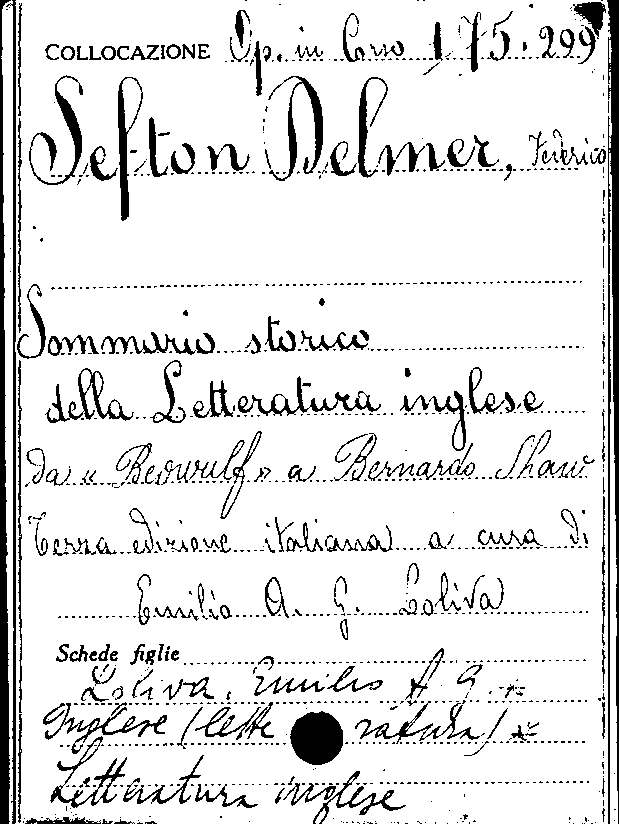 COLLOCAZIONE Op. in Corso 175.299
Sefton Delmer, Federico
Sommario storico
della Letteratura inglese
da « Beowulf » a Bernardo Shaw
Terza edizione italiana a cura di
Emilio A. G. Loliva
Schede figlie
Loliva, Emilio A. G. *
Inglese (letteratura) *
Letteratura inglese